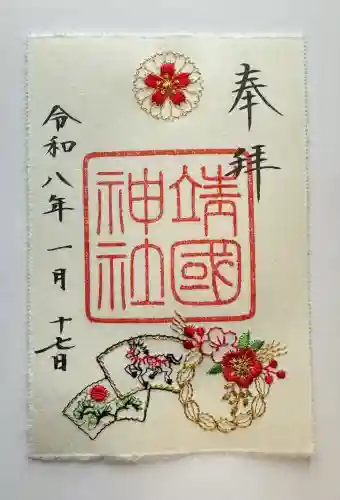 奉拝
靖國
神社
令和八年一月十七日